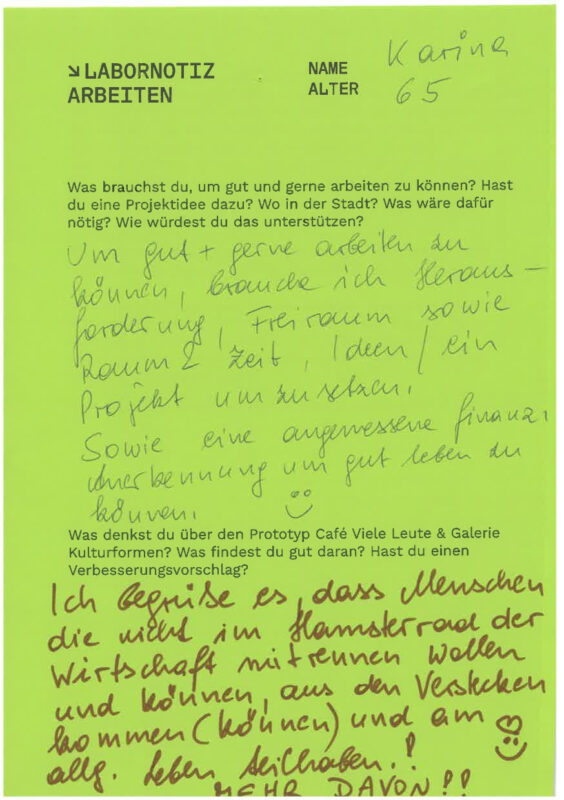 ↘LABORNOTIZ
ARBEITEN
NAME Karina
ALTER 65
Was brauchst du, um gut und gerne arbeiten zu können? Hast
du eine Projektidee dazu? Wo in der Stadt? Was wäre dafür
nötig? Wie würdest du das unterstützen?
Um gut + gerne arbeiten zu
können, brauche ich Heraus-
forderung, Freiraum sowie
Raum & Zeit, Ideen/ein
Projekt umzusetzen.
Sowie eine angemessene finanz.
Anerkennung um gut leben zu
können.
Was denkst du über den Prototyp Café Viele Leute & Galerie
Kulturformen? Was findest du gut daran? Hast du einen
Verbesserungsvorschlag?
Ich begrüße es, dass Menschen
die nicht im Hamsterrad der
Wirtschaft mitrennen wollen
und können, aus den Verstecken
kommen (können) und am
allg. Leben teilhaben.!
MEHR DAVON!!